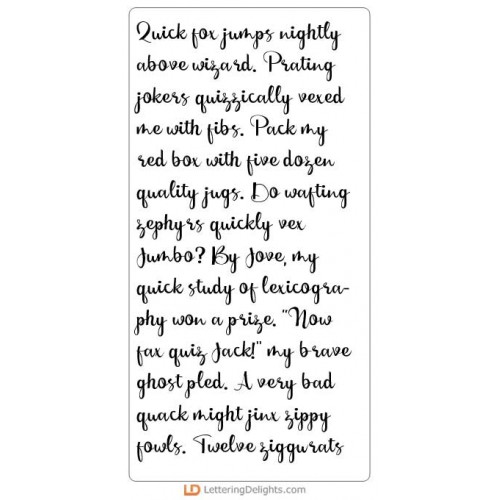 Quick fox jumps nightly
above wizard. Prating
jokers quizzically vexed
me with fibs. Pack my
red box with five dozen
quality jugs. Do wafting
zephyrs quickly vex
Jumbo? By Jove, my
quick study of lexicogra-
phy won a prize. "Now
fax quiz Jack!" my brave
ghost pled. A very bad
quack might jinx zippy
fowls. Twelve ziggurats
LD LetteringDelights.com